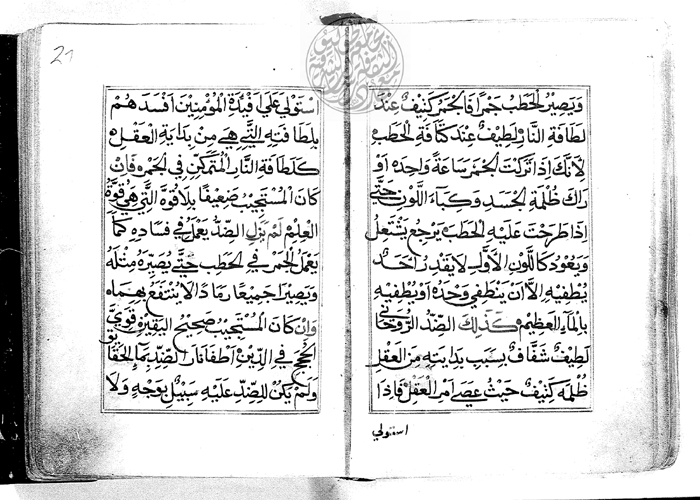 ويصير الحطب جمرا فالجمر كثيف عند
لطافة النار لطيف عند كثافة الحطب
لانك اذا تركت الجمر ساعة واحده او
راك ظلمة الجسد وكباء اللون حتى
اذا طرحت عليه الحطب يرجع يشتعل
ويعود كاللون الاول لا يقدر احد
يطفيه الا ان ينطفي وحده او يطفيه
بالماء العظيم كذلك الضد الروحاني
لطيف شفاف بسبب بدايته من العقل
ظلمه كثيف حيث عصى امر العقل فاذا
استولي
21
استولى على افيدة المؤمنين افسدهم
بلطافته التي هي من بداية العقل
كلطافة النار المتمكن في الجمره فان
كان المستجيب ضعيفا بلا قوة التي هي قوة
العلم لم يزل الضد يعمل في فساده كما
يعمل الجمر في الحطب حتى يصيره مثله
ويصيرا جميعا رمادا لا ينتفع بهما
وان كان المستجيب صحيح اليقين قوي
الحجج في الدين اطفا نار الضد بماء الحقايق
ولم يكن للضد عليه سبيل بوجه ولا